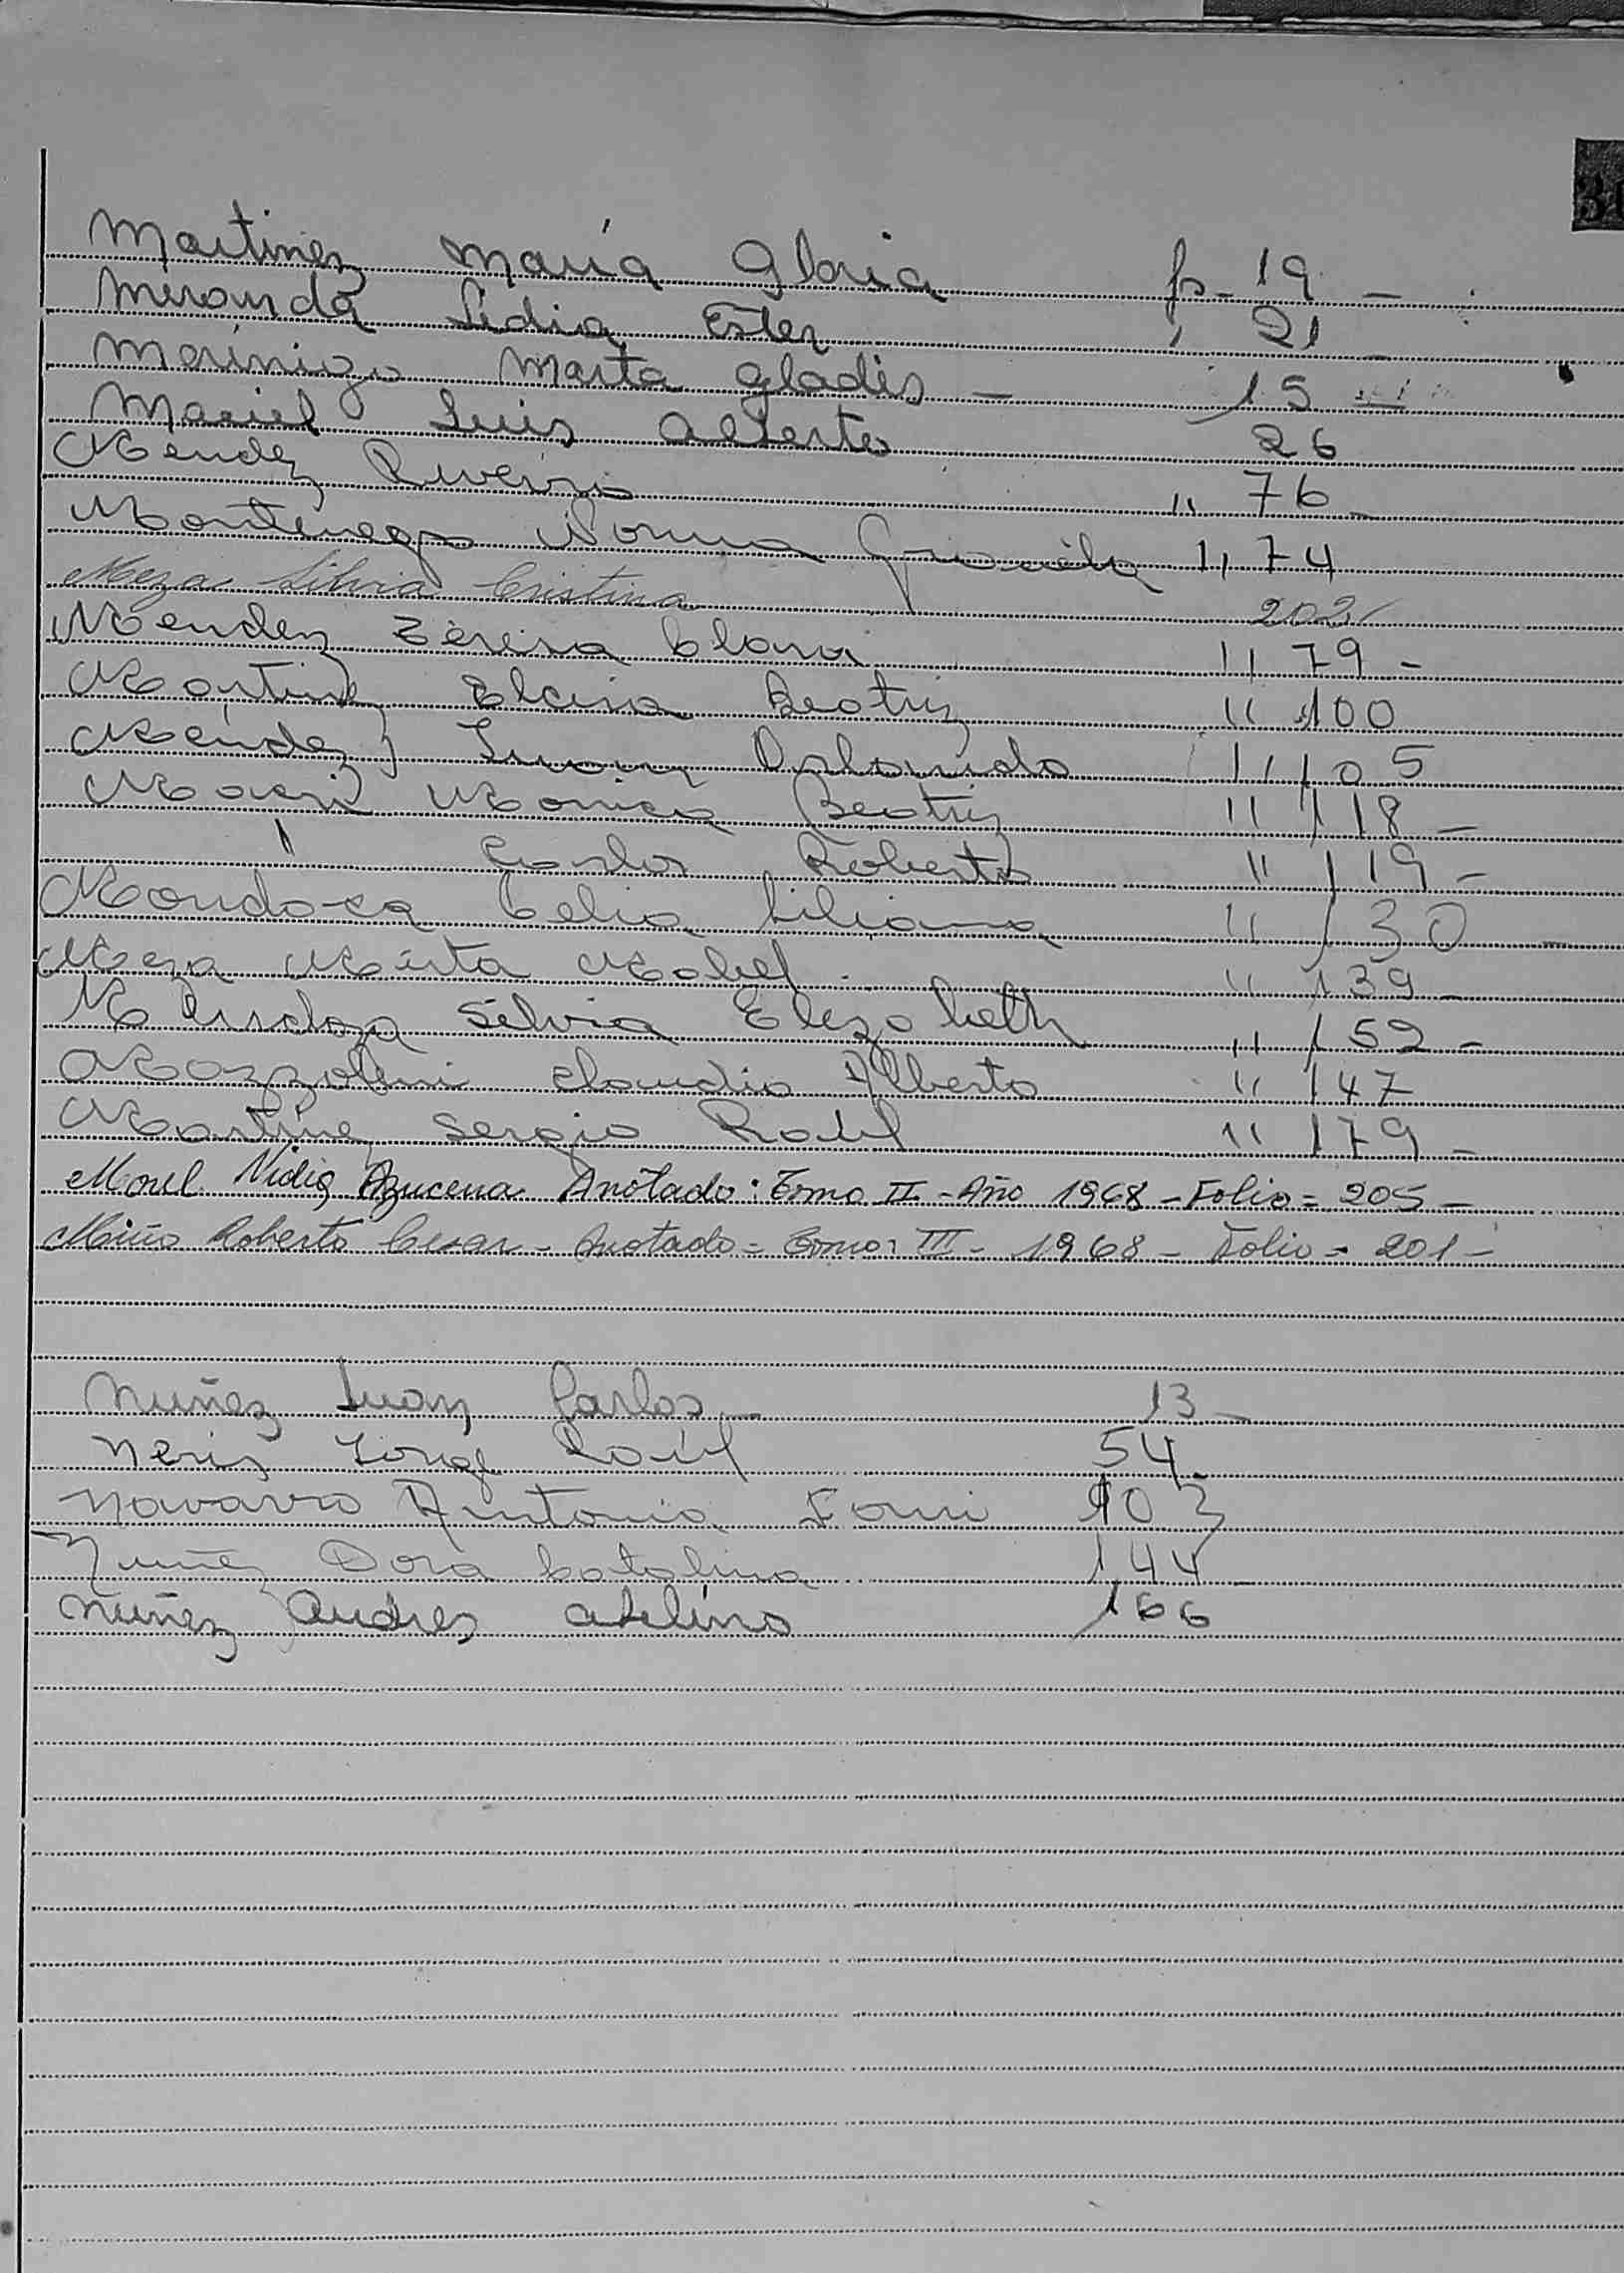 31
Martinez María Gloria fs- 19 -
Miranda Lidia Ester " 21 -
Merínigo Marta Gladis - 15 -
Maciel Luis Alberto 26
Mendez " 76 -
Montenegro Norma Graciela " 74
Meza Silvia Cristina 202
Mendez Teresa Clara " 79 -
Martinez Elcira Beatriz " 100
Méndez Juan Orlando " 105
Macri Monica Beatriz " 118 -
" Carlos Roberto " 119 -
Mendoza Celia Liliana " 130 -
Meza Mirta Mabel " 139 -
Mendoza Silvia Elizabeth " 152 -
Mazzoleni Claudio Alberto " 147
Martinez Sergio Raúl " 179 -
Morel Nidia Azucena Anotado: Tomo II - Año 1968 - Folio = 205 -
Miño Roberto Cesar - Anotado = Tomo: III - 1968 - Folio = 201 -
Nuñez Juan Carlos - 13 -
Neris Jorge Raúl 54
Navarro Antonia 103
Nuñez Dora Catalina 144 -
Nuñez Andres Avelino 166